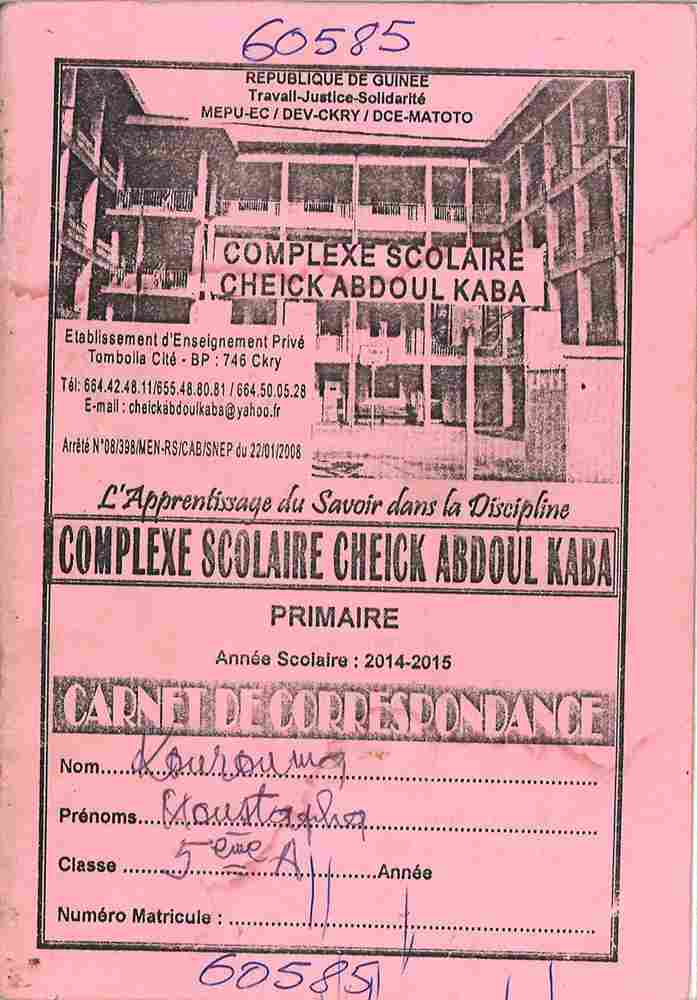 60585
REPUBLIQUE DE GUINEE
Travail-Justice-Solidarité
MEPU-EC / DEV-CKRY / DCE-MATOTO
COMPLEXE SCOLAIRE
CHEICK ABDOUL KABA
Etablissement d'Enseignement Privé
Tombolia Cité - BP : 746 Ckry
Tél: 664.42.48.11/655.48.80.81 / 664.50.05.28
E-mail : cheickabdoulkaba@yahoo.fr
Arrêté N°08/398/MEN-RS/CAB/SNEP du 22/01/2008
L'Apprentissage du Savoir dans la Discipline
COMPLEXE SCOLAIRE CHEICK ABDOUL KABA
PRIMAIRE
Année Scolaire : 2014-2015
CARNET DE CORRESPONDANCE
Nom..... Kourouma
Prénoms.... Moustapha
Classe ..... 5ème A .....Année
Numéro Matricule : .....
60585